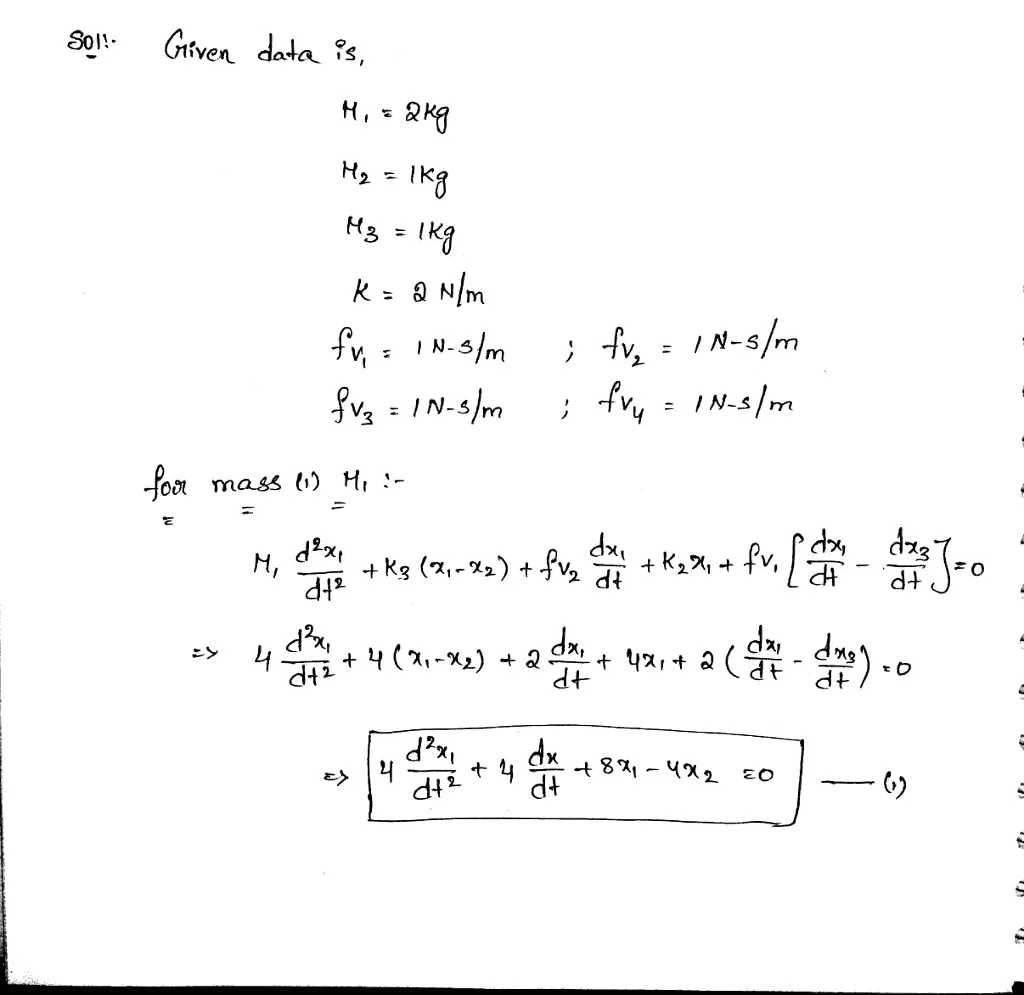 Sol!:- Given data is,
M₁ = 2kg
M₂ = 1kg
M₃ = 1kg
K = 2 N/m
fv₁ = 1 N-s/m ; fv₂ = 1 N-s/m
fv₃ = 1 N-s/m ; fv₄ = 1 N-s/m
for mass (1) M₁ :-
M₁ d²x₁/dt² + K₃ (x₁-x₂) + fv₂ dx₁/dt + K₂x₁ + fv₁ [dx₁/dt - dx₃/dt] = 0
=> 4 d²x₁/dt² + 4 (x₁-x₂) + 2 dx₁/dt + 4x₁ + 2 (dx₁/dt - dx₃/dt) = 0
=> 4 d²x₁/dt² + 4 dx/dt + 8x₁ - 4x₂ = 0 — (1)